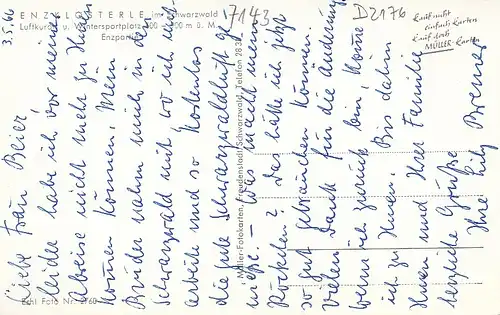 ENZKLÖSTERLE im Schwarzwald
Luftkurort u. Wintersportplatz 600 - 900 m ü. M.
Enzpartie
7143
D2176
Kauf nicht
einfach Karten
Kauf doch
MÜLLER-Karten
3.5.66
Liebe Frau Beier!
Leider habe ich vor meiner
Abreise nicht mehr zu Ihnen
kommen können. Mein
Bruder nahm mich in den
Schwarzwald mit wo ich nun
arbeite und so kostenlos
die gute Schwarzwaldluft ge-
nieße. – Was macht mein
Röckchen? Das hätte ich jetzt
so gut gebrauchen können.
Vielen Dank für die Änderung
wenn ich zurück bin, komme
ich zu Ihnen. Bis dahin
Ihnen und Ihrer Familie
herzliche Grüße
Ihre Hilg Bremer
Müller-Fotokarten, Freudenstadt/Schwarzwald, Telefon 28 38
Echt Foto Nr. 2/60